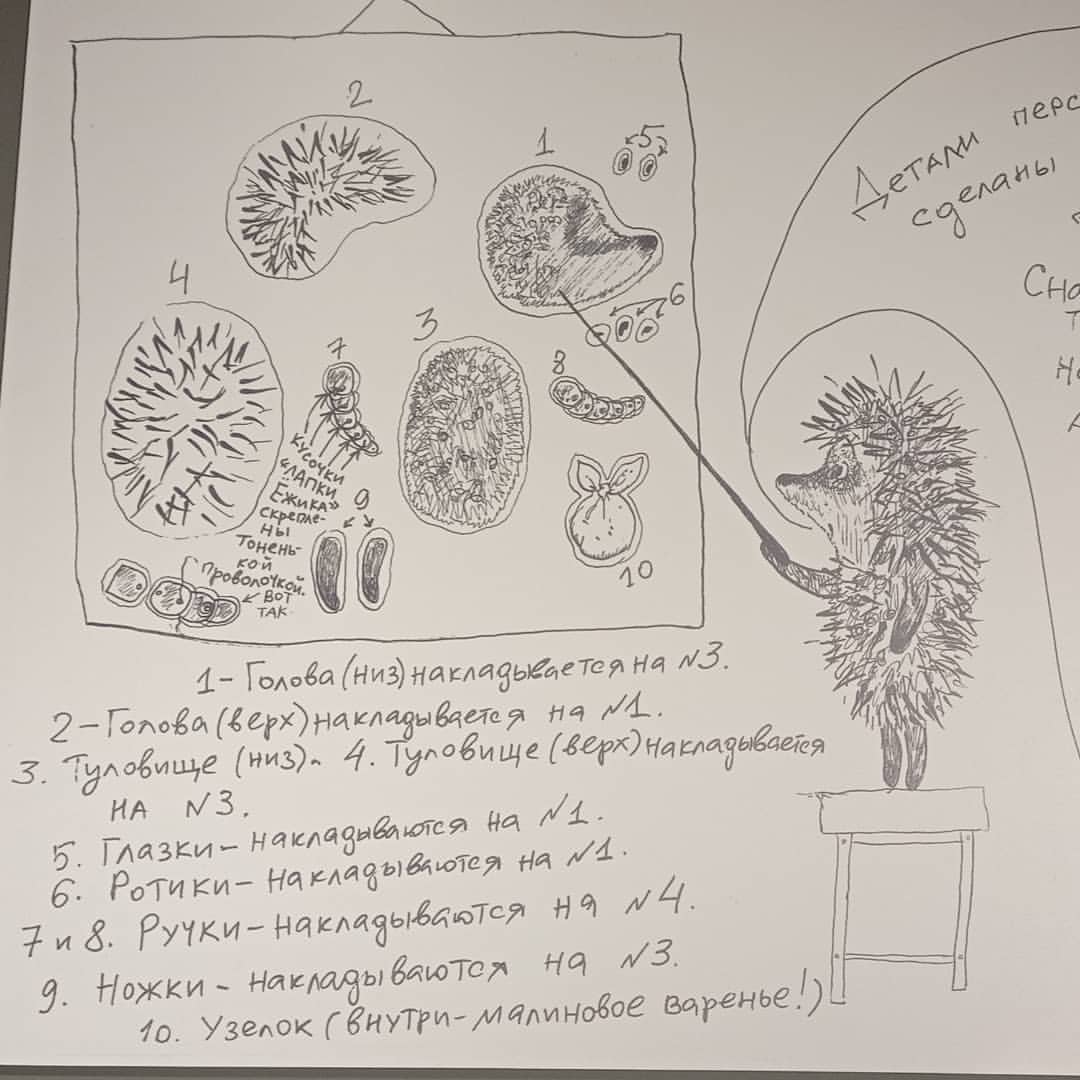 2
1
5
4
3
6
7
8
кусочки
«лапки
Ёжика»
скрепле-
ны
тонень-
кой
проволочкой.
вот
так
9
10
Детали
сделаны
1- Голова (низ) накладывается на №3.
2- Голова (верх) накладывается на №1.
3. Туловище (низ). 4. Туловище (верх) накладывается
на №3.
5. Глазки- накладываются на №1.
6. Ротики- накладываются на №1.
7 и 8. Ручки- накладываются на №4.
9. Ножки- накладываются на №3.
10. Узелок (внутри- малиновое варенье!)